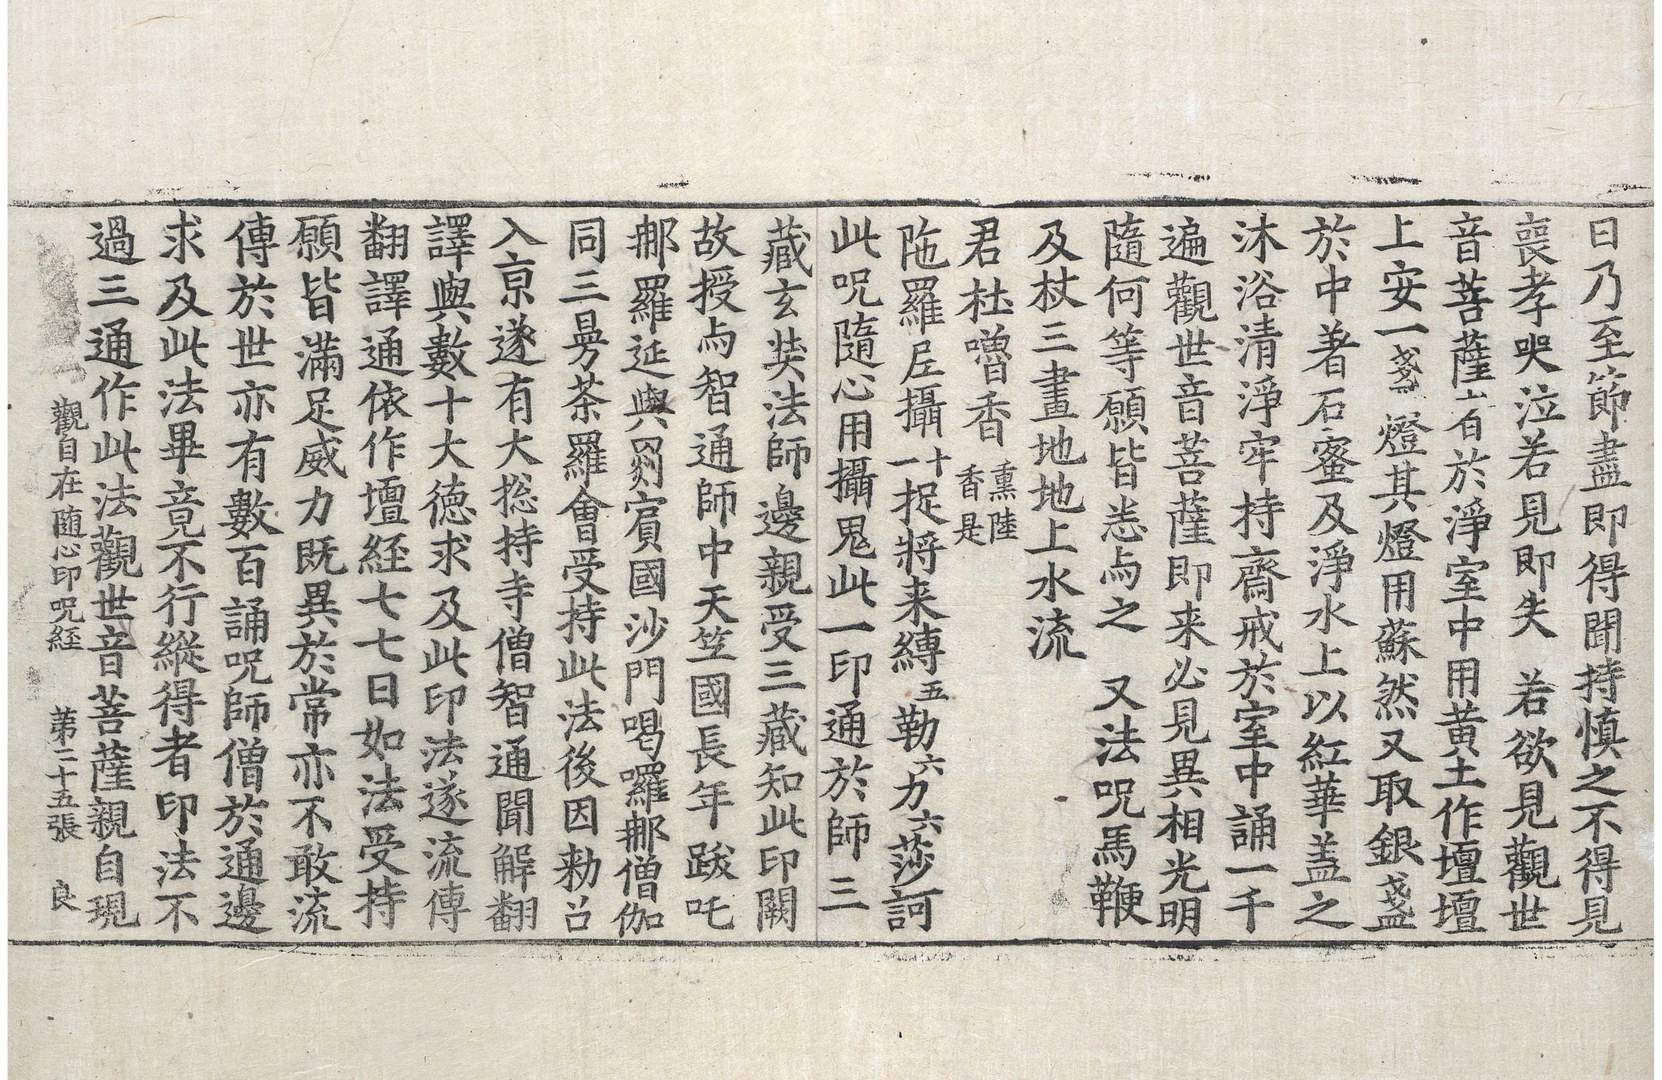 日乃至節盡即得聞持慎之不得見
喪孝哭泣若見即失　若欲見觀世
音菩薩者於淨室中用黄土作壇壇
上安一盞燈其燈用蘇然又取銀盞
於中著石蜜及淨水上以紅華盖之
沐浴清淨牢持齋戒於室中誦一千
遍觀世音菩薩即来必見異相光明
隨何等願皆悉与之　又法呪馬鞭
及杖三畫地地上水流
君杜嚕香熏陸香是
陁羅𡰱攝十一捉將来縛五勒六力六莎訶
此呪隨心用攝鬼此一印通於師三
藏玄奘法師邊親受三藏知此印闕
故授与智通師中天笁國長年跋吒
𨚗羅延與罽賓國沙門喝囉𨚗僧伽
同三曼茶羅會受持此法後因勑召
入京遂有大惣持寺僧智通聞解翻
譯與數十大德求及此印法遂流傳
翻譯通依作壇経七七日如法受持
願皆滿足威力既異於常亦不敢流
傳於世亦有數百誦呪師僧於通邊
求及此法畢竟不行縱得者印法不
過三通作此法觀世音菩薩親自現
觀自在随心印呪経　苐二十五張　良